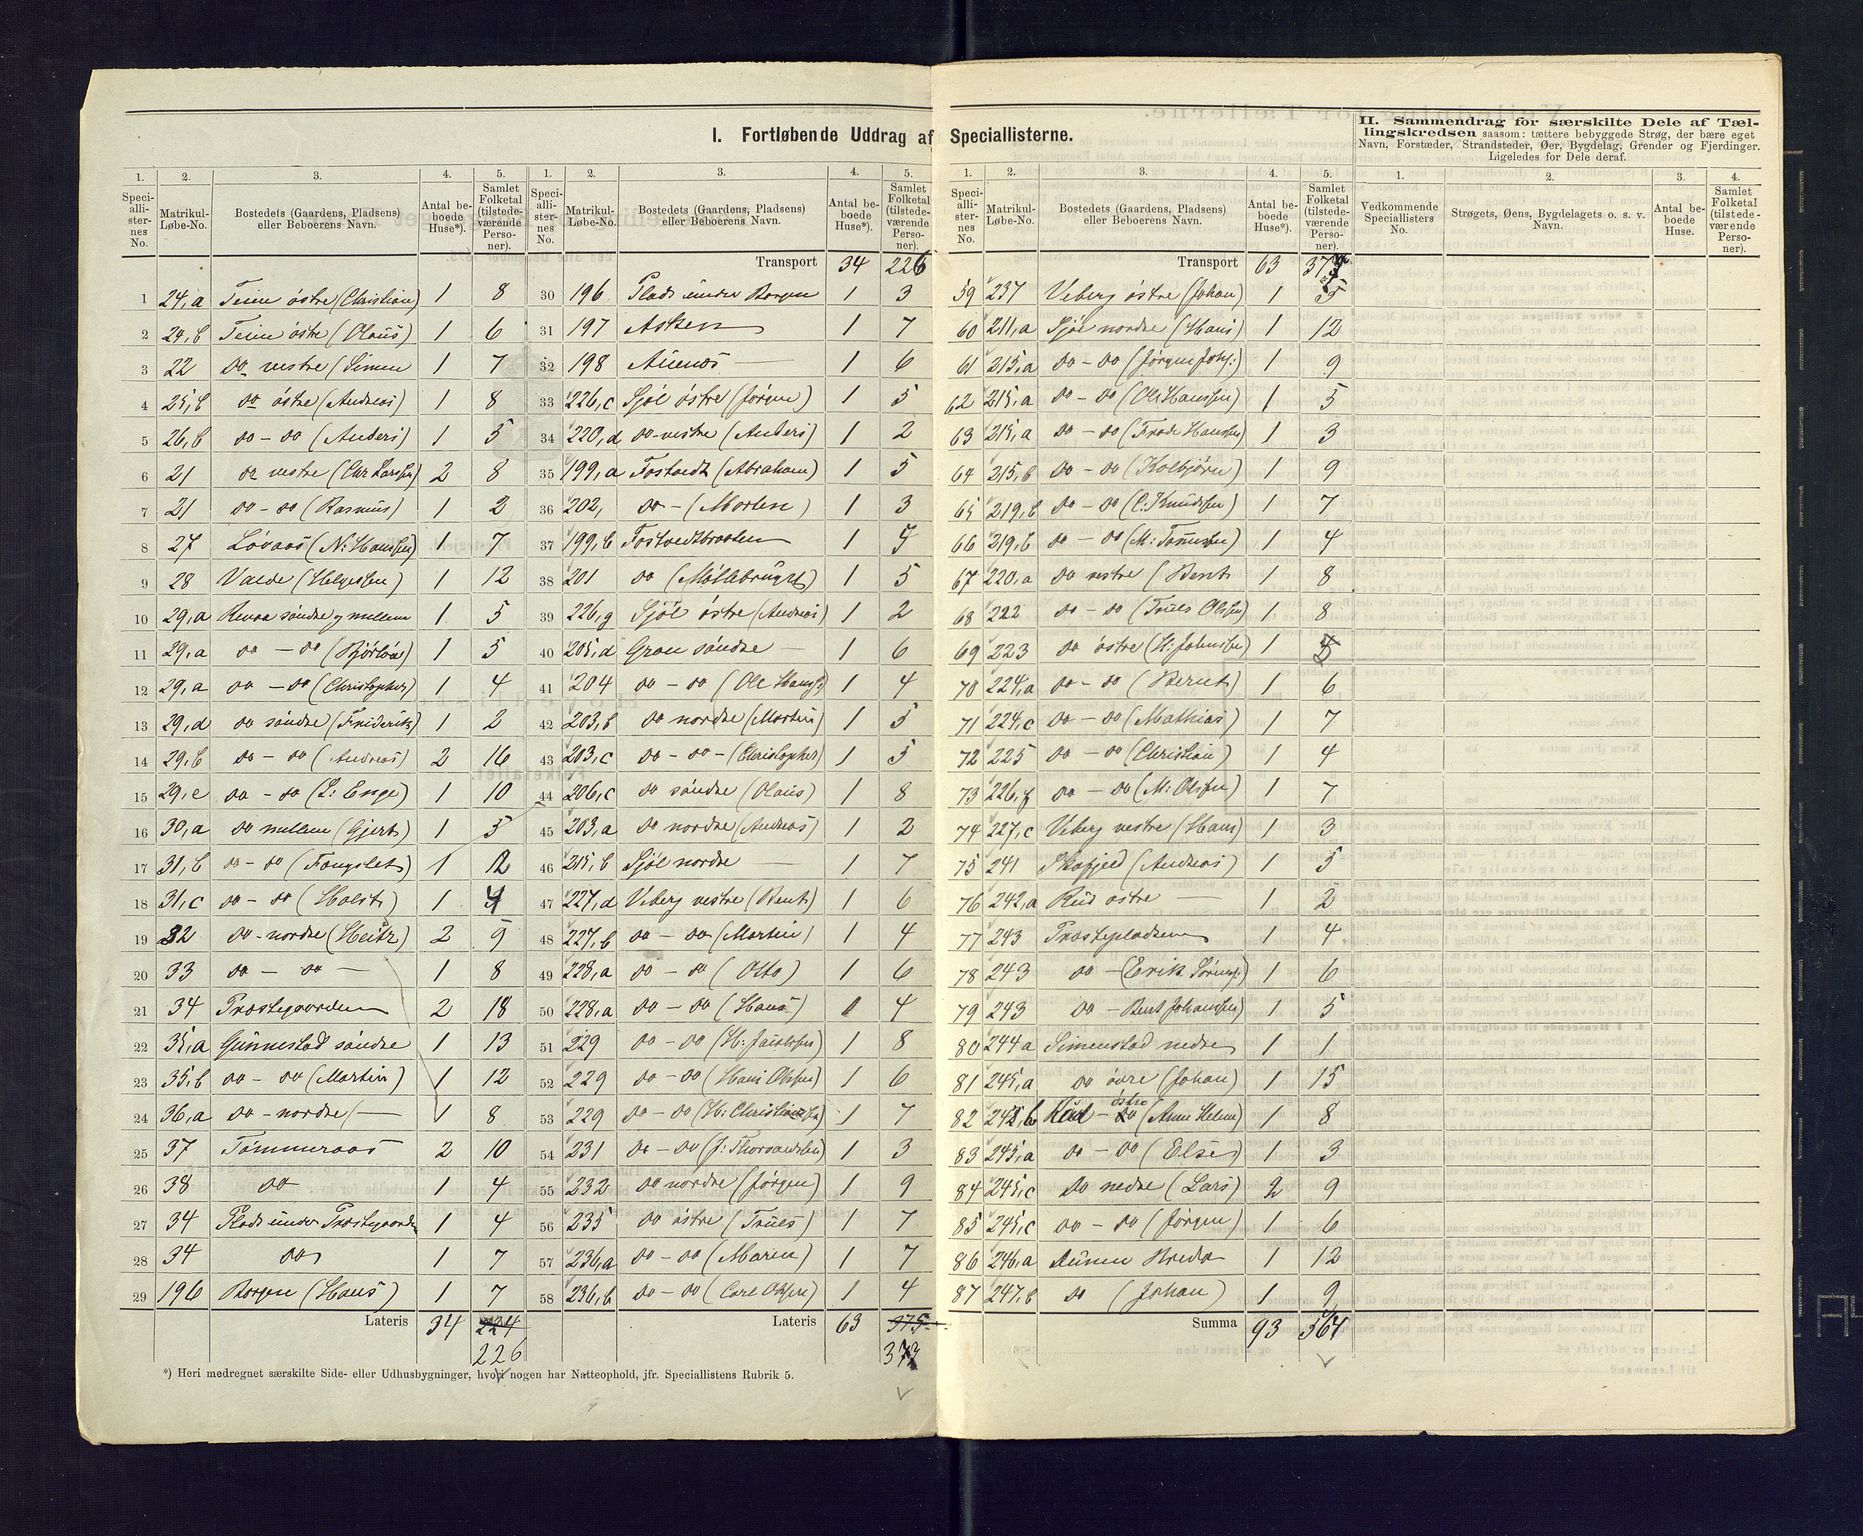 I. Fortløbende Uddrag af Speciallisterne.
II. Sammendrag for særskilte Dele af Tællingskredsen saasom: tættere bebyggede Strøg, der bære eget Navn, Forstæder, Strandsteder, Øer, Bygdelag, Grender og Fjerdinger. Ligeledes for Dele deraf.
1. 2. 3. 4. 5. 1. 2. 3. 4. 5. 1. 2. 3. 4. 5. 1. 2. 3. 4.
Speciallisternes No. Matrikul-Løbe-No. Bostedets (Gaardens, Pladsens) eller Beboerens Navn. Antal beboede Huse*). Samlet Folketal (tilstedeværende Personer).
Speciallisternes No. Matrikul-Løbe-No. Bostedets (Gaardens, Pladsens) eller Beboerens Navn. Antal beboede Huse*). Samlet Folketal (tilstedeværende Personer).
Speciallisternes No. Matrikul-Løbe-No. Bostedets (Gaardens, Pladsens) eller Beboerens Navn. Antal beboede Huse*). Samlet Folketal (tilstedeværende Personer).
Vedkommende Speciallisters No. Strøgets, Øens, Bygdelagets o. s. v. Navn. Antal beboede Huse. Samlet Folketal (tilstedeværende Personer).
1 24,a Teien østre (Christian) 1 8
2 24,b Teien østre (Olaus) 1 6
3 22 do vestre (Simen 1 7
4 25,b do østre (Andreas) 1 8
5 26,b do - do (Anders) 1 5
6 21 do vestre (Chr Larssen) 2 8
7 21 do - do (Rasmus) 1 2
8 27 Løvaas (N: Hanssen) 1 7
9 28 Valde (Helgesen) 1 12
10 29,a Revaa søndre og mellem 1 5
11 29,a do - do 1 5
12 29,a do - do (Christopher) 1 4
13 29,d do søndre (Friderik) 1 2
14 29,b do - do (Andreas) 2 16
15 29,e do - do (L: Enge) 1 10
16 30,a do mellem (Gjert) 1 5
17 31,b do - do 1 12
18 31,c do - do (Holst) 1 4
19 32 do - nordre 2 9
20 33 do - do - 1 8
21 34 Præstegaarden 2 18
22 35,a Gunnestad søndre 1 13
23 35,b do - do (Martin) 1 12
24 36,a do - nordre ( - 1 8
25 37 Tømmeraas 2 10
26 38 do 1 4
27 34 Plads under Præstegaarden 1 4
28 34 do 1 7
29 196 Borgen (Hans) 1 7
Lateris 34 224
226
Transport 34 226
30 196 Plads under Borgen 1 3
31 197 Asken 1 7
32 198 Auenæs 1 6
33 226,c Sjøl østre (Jørgen) 1 5
34 220,d do - vestre (Anders) 1 2
35 199,a Fostvedt (Abraham) 1 5
36 202, do - (Morten) 1 3
37 199,b Fostvedtbraaten 1 5
38 201 do (Møllebruget) 1 5
39 226,g Sjøl østre (Andreas) 1 2
40 205,d Gran søndre - 1 6
41 204 do - do (Ole Hanss:) 1 4
42 203,b do nordre (Martin) 1 5
43 203,c do - do - (Christopher) 1 5
44 206,c do søndre (Olaus) 1 8
45 203,a do nordre (Andreas) 1 2
46 215,b Sjøl nordre - 1 7
47 227,d Viberg vestre (Bent) 1 6
48 227,b do - do (Martin) 1 4
49 228,a do - do (Otto) 1 6
50 228,a do - do (Hans) 1 4
51 229 do - do (H: Jacobsen) 1 8
52 229 do - do (Hans Olssen) 1 6
53 229 do - do (H: Christiansen) 1 7
54 231 do - do (J: Thorvaldsen) 1 3
55 232 do nordre (Jørgen) 1 9
56 235 do østre (Truls) 1 7
57 236,a do - do (Maren) 1 7
58 236,b do - do (Carl Olssen) 1 4
Lateris 63 375
373
Transport 63 373
59 237 Viberg østre (Johan) 1 5
60 211,a Sjøl nordre (Hans) 1 12
61 215,a do - do (Jørgen Joh:) 1 9
62 215,a do - do (Ole Hanssen) 1 5
63 215,a do - do (Frode Hanssen) 1 3
64 215,b do - do (Kolbjørn) 1 9
65 219,b do - do (C: Knudssen) 1 7
66 219,b do - do 1 4
67 220,a do vestre (Bent 1 8
68 222 do - do (Truls Olssen) 1 8
69 223 do østre (H: Johnssen) 1 5
70 224,a do - do (Bernt) 1 6
71 224,c do - do (Mathias) 1 7
72 225 do - do (Christian) 1 4
73 226,f do - do (M: Olssen) 1 7
74 227,c Viberg vestre (Hans) 1 3
75 241 Skofjeld (Andreas) 1 5
76 242,a Rud østre - 1 2
77 243 Præstepladsen 1 4
78 243 do - (Erik Sørens:) 1 6
79 243 do - Bent Johanssen) 1 5
80 244 a Simenstad nedre 1 1
81 245,a do øvre (Johan) 1 15
82 242,b Rud - østre (Anne Helene) 1 8
83 245,a do - do (Else) 1 3
84 245,c do nedre (Lars) 2 9
85 245,c do - do (Jørgen) 1 6
86 246,a Aunen 1 12
87 247,b do (Johan) 1 9
Summa 93 564
*) Heri medregnet særskilte Side- eller Udhusbygninger, hvori nogen har Natteophold, jfr. Speciallistens Rubrik 5.